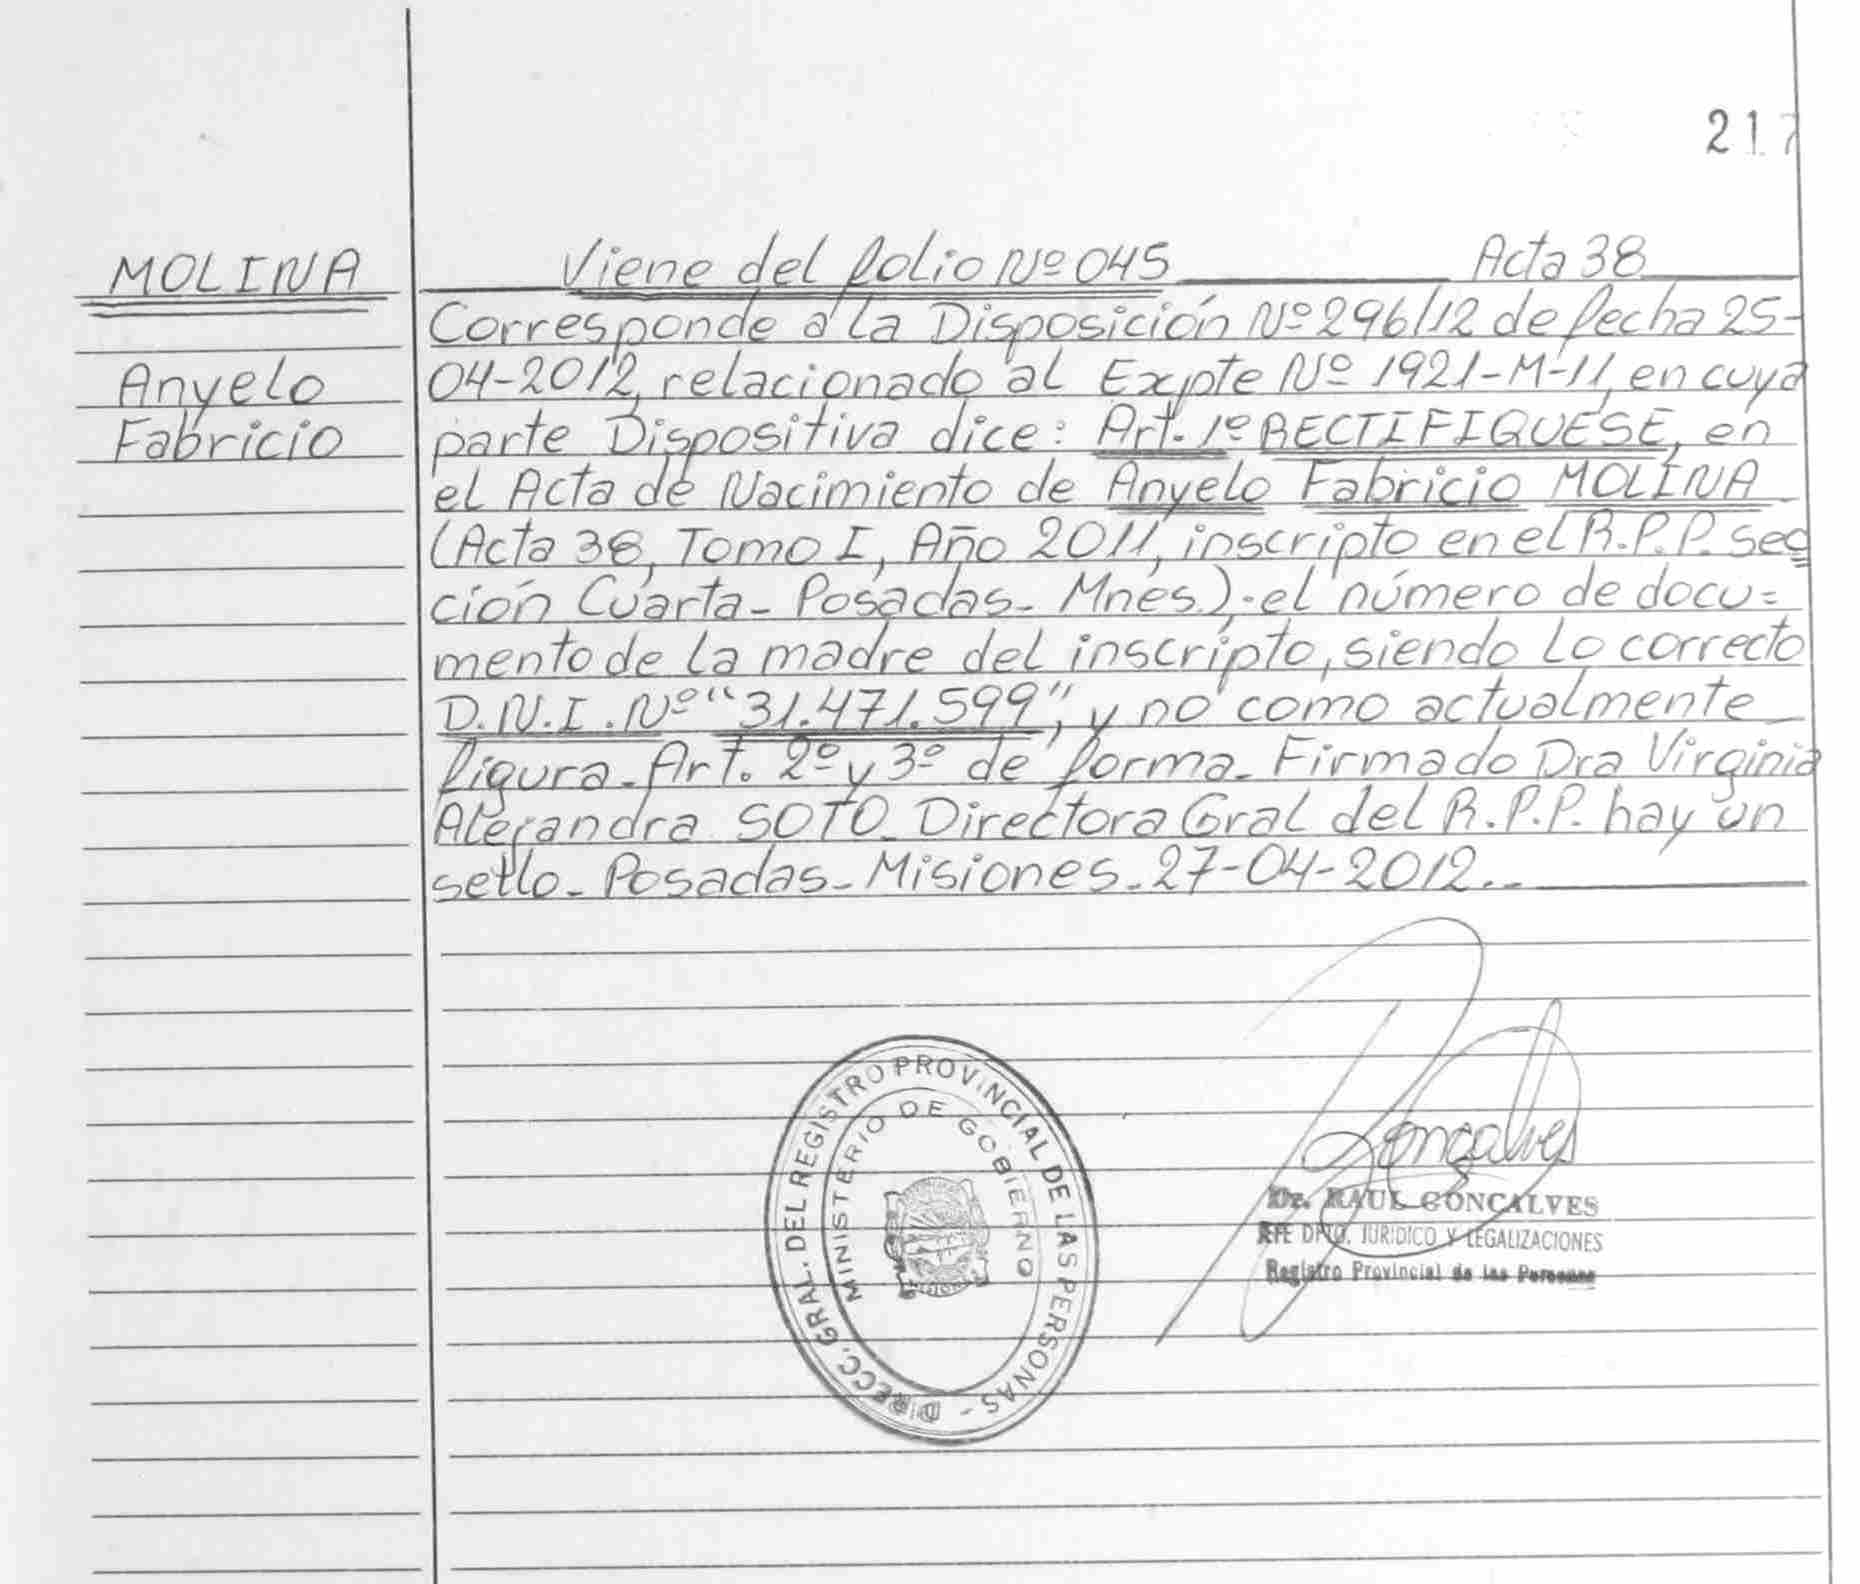 217
MOLINA
Anyelo
Fabricio
Viene del folio Nº 045 Acta 38
Corresponde a la Disposición Nº 296/12 de fecha 25-
04-2012, relacionado al Expte Nº 1921-M-11, en cuya
parte Dispositiva dice: Art. 1º RECTIFIQUESE, en
el Acta de Nacimiento de Anyelo Fabricio MOLINA
(Acta 38, Tomo I, Año 2011, inscripto en el R.P.P. Sec
ción Cuarta- Posadas- Mnes.)-el número de docu=
mento de la madre del inscripto, siendo lo correcto
D.N.I. Nº "31.471.599", y no como actualmente
figura- Art. 2º y 3º de forma- Firmado Dra Virginia
Alejandra SOTO- Directora Gral del R.P.P. hay un
sello- Posadas- Misiones- 27-04-2012.-
DIRECC. GRAL. DEL REGISTRO PROVINCIAL DE LAS PERSONAS -
MINISTERIO DE GOBIERNO
Gonçalves
Dr. RAUL GONCALVES
JEFE DPTO. JURIDICO Y LEGALIZACIONES
Registro Provincial de las Personas